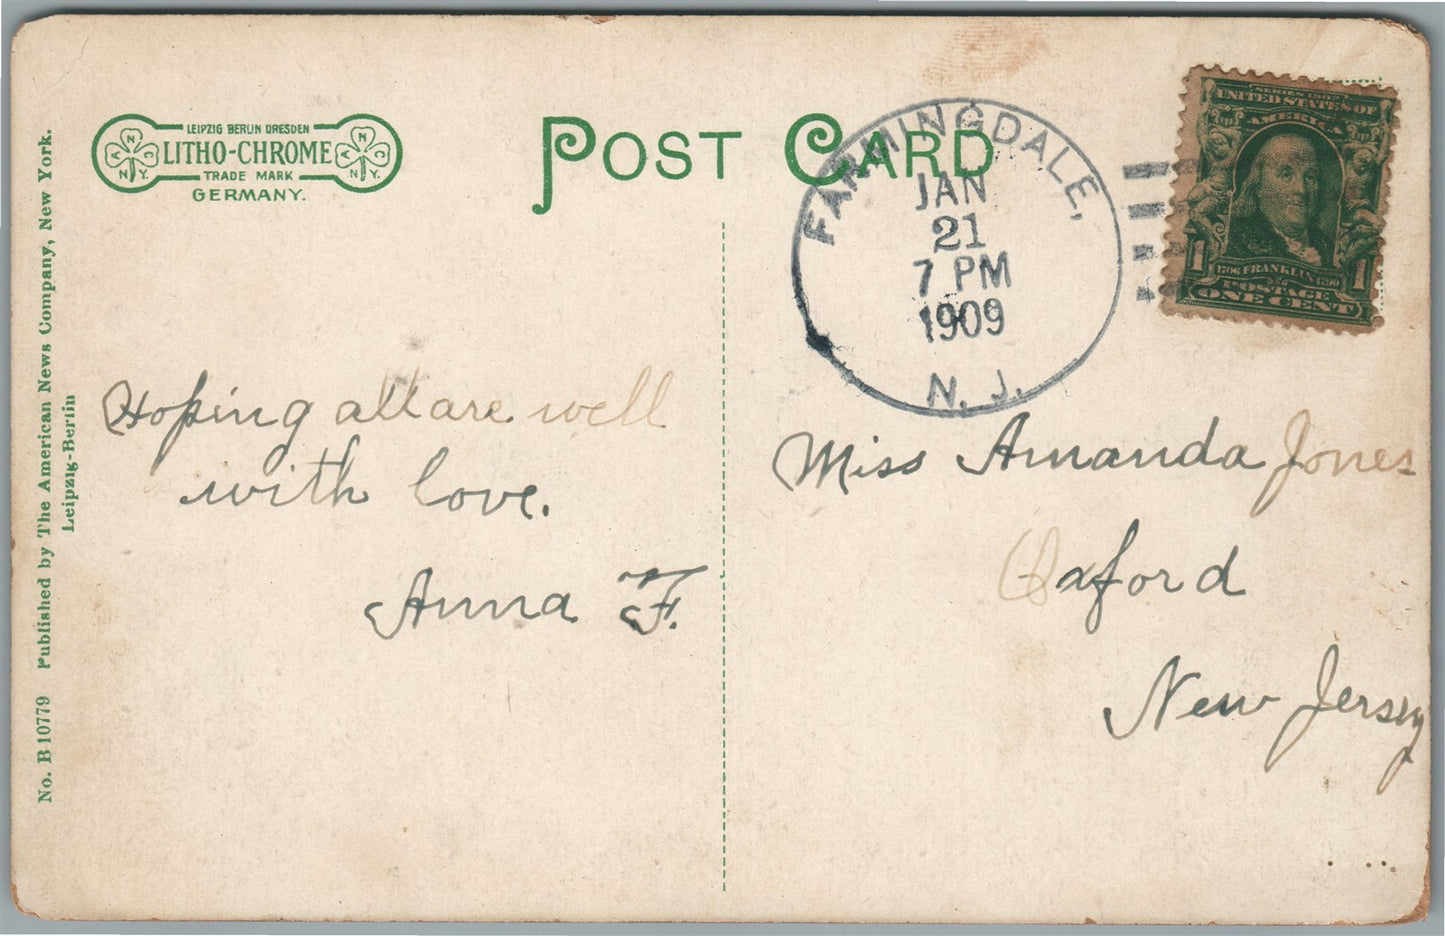 LEIPZIG BERLIN DRESDEN
LITHO-CHROME
TRADE MARK
GERMANY.
A N C N.Y.
A N C N.Y.
POST CARD
FARMINGDALE,
JAN
21
7 PM
1909
N. J.
SERIES 1902
UNITED STATES OF
AMERICA
1 1
1706 FRANKLIN 1790
POSTAGE
ONE CENT
No. B 10779 Published by The American News Company, New York.
Leipzig-Berlin
Hoping all are well
with love.
Anna F.
Miss Amanda Jones
Oxford
New Jersey